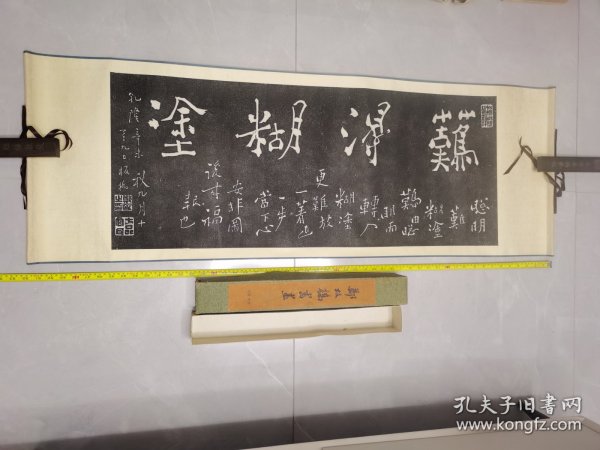 難得糊塗
聰明
難
糊塗
難由聰
明而
轉入
糊塗
更難放
一着退
一步
當下心
安非圖
後來福
報也
乾隆辛未秋九月十
有九日板橋
鄭板橋書畫
孔夫子旧书网
www.kongfz.com